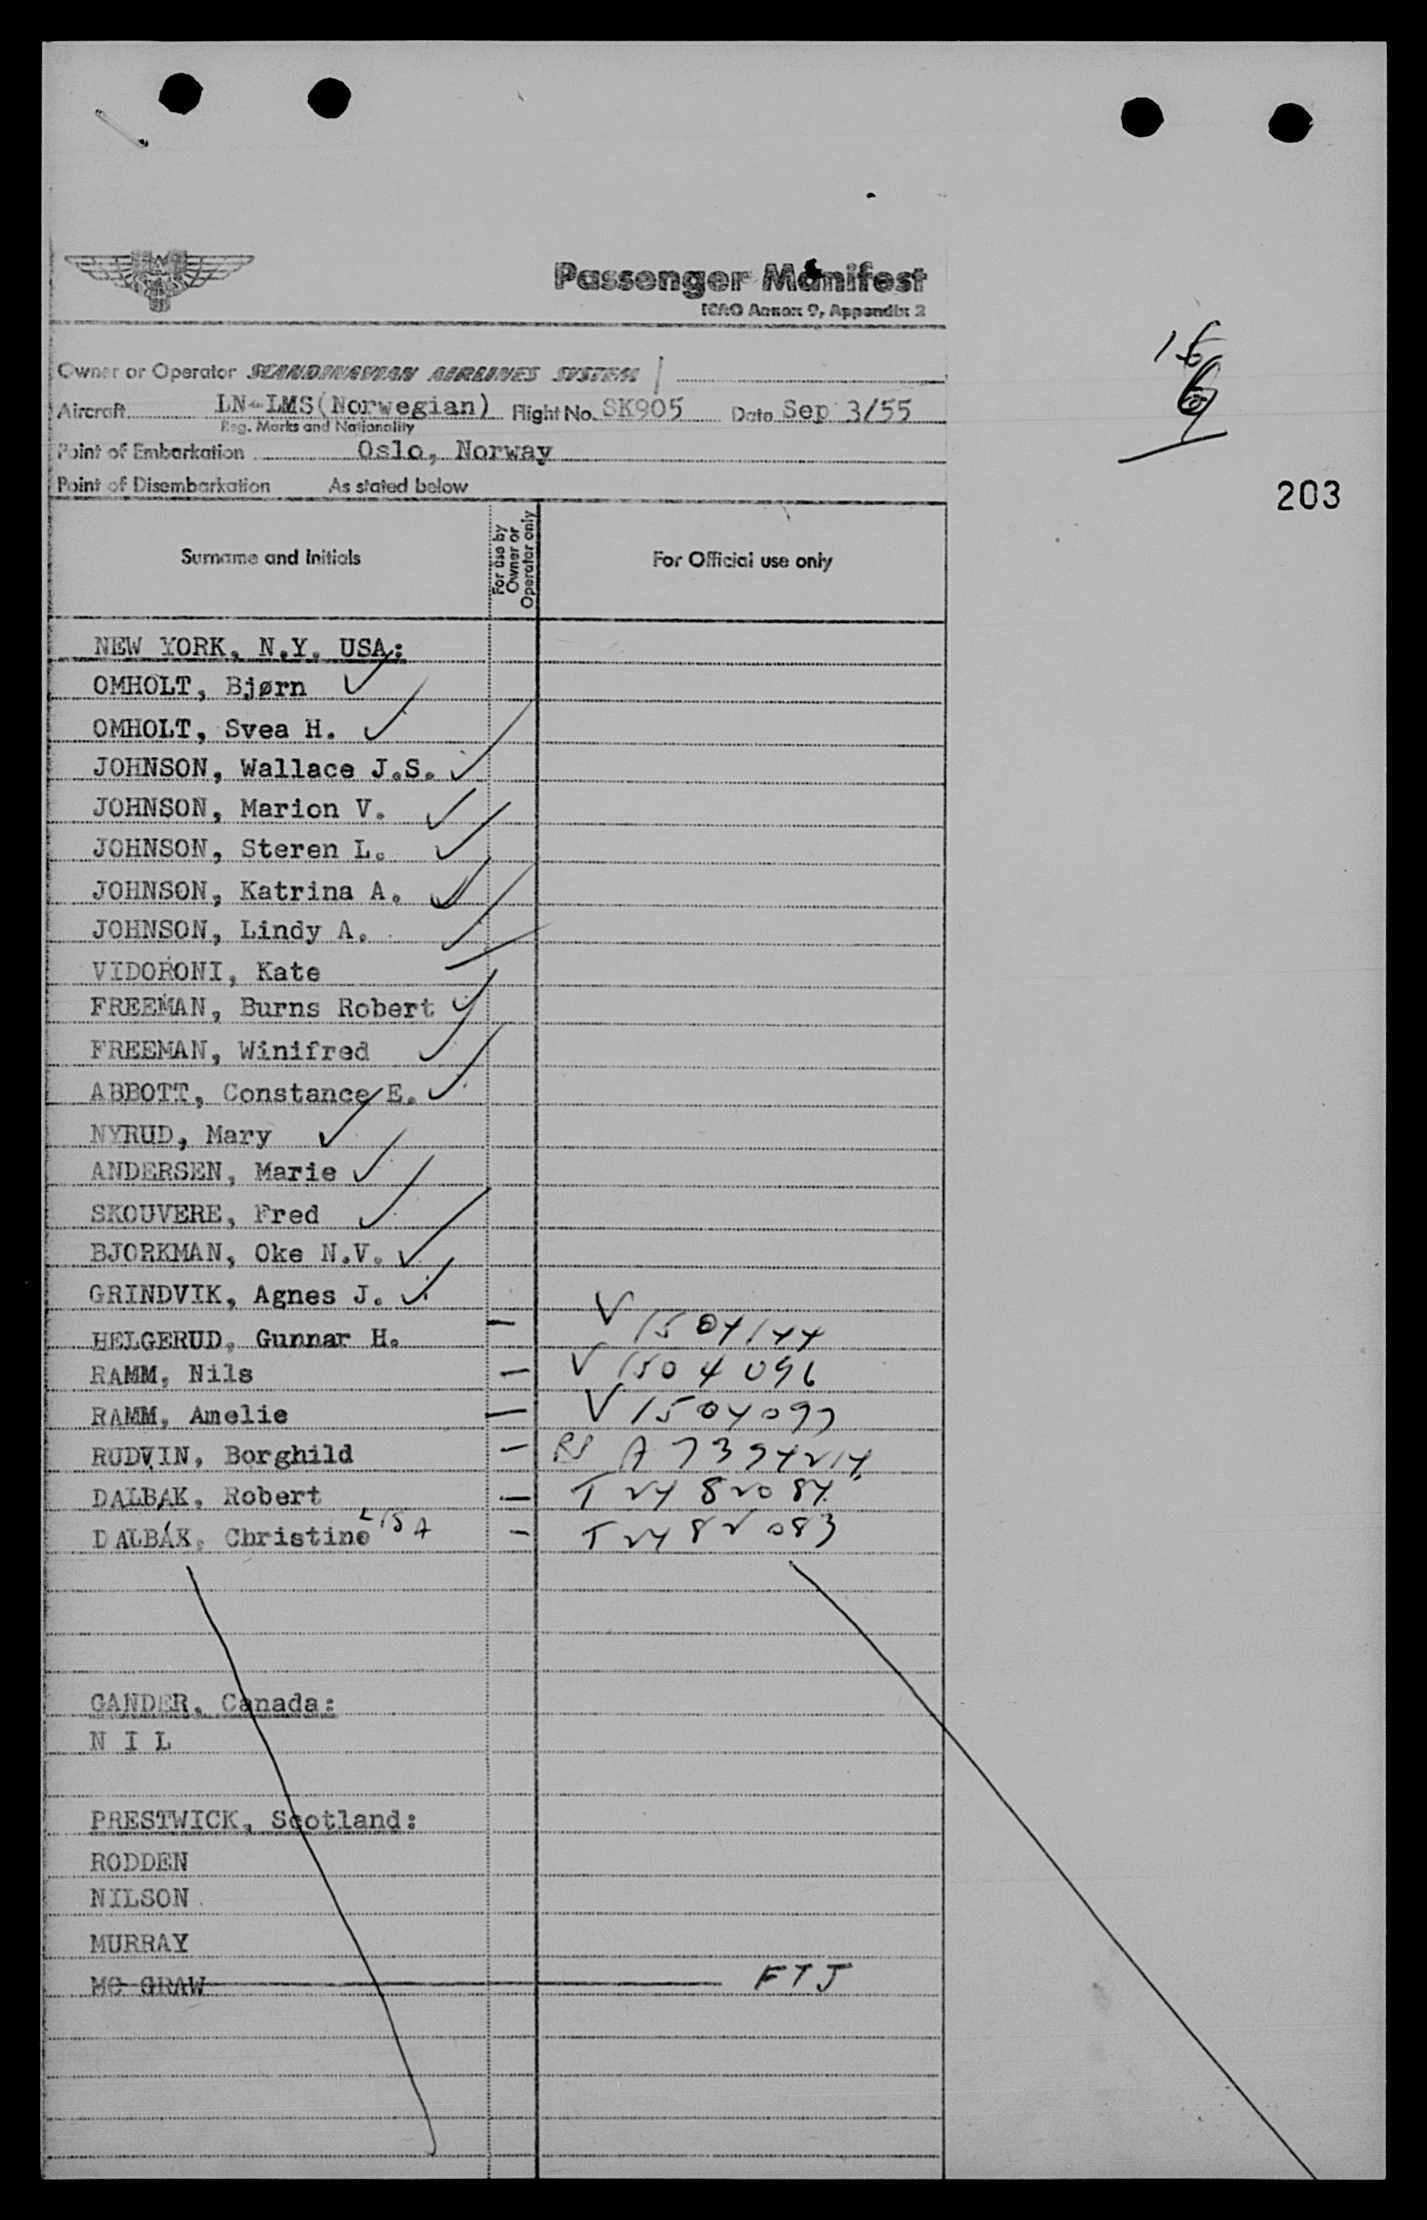 Passenger Manifest
ICAO Annex 9, Appendix 2
16
6
Owner or Operator SCANDINAVIAN AIRLINES SYSTEM
Aircraft LN-LMS(Norwegian) Flight No. SK905 Date Sep 3/55
Reg. Marks and Nationality
Point of Embarkation Oslo, Norway
Point of Disembarkation As stated below
203
Surname and Initials For use by Owner or Operator only For Official use only
NEW YORK, N.Y. USA:
OMHOLT, Bjørn
OMHOLT, Svea H.
JOHNSON, Wallace J.S.
JOHNSON, Marion V.
JOHNSON, Steren L.
JOHNSON, Katrina A.
JOHNSON, Lindy A.
VIDORONI, Kate
FREEMAN, Burns Robert
FREEMAN, Winifred
ABBOTT, Constance E.
NYRUD, Mary
ANDERSEN, Marie
SKOUVERE, Fred
BJORKMAN, Oke N.V.
GRINDVIK, Agnes J.
HELGERUD, Gunnar H. — V 1504144
RAMM, Nils — V 1504096
RAMM, Amelie — V 1504097
RUDVIN, Borghild — RP A7394214
DALBAK, Robert — T 2482084
DALBAK, Christine LISA — T 2482083
GANDER, Canada:
N I L
PRESTWICK, Scotland:
RODDEN
NILSON
MURRAY
MC GRAW FTJ